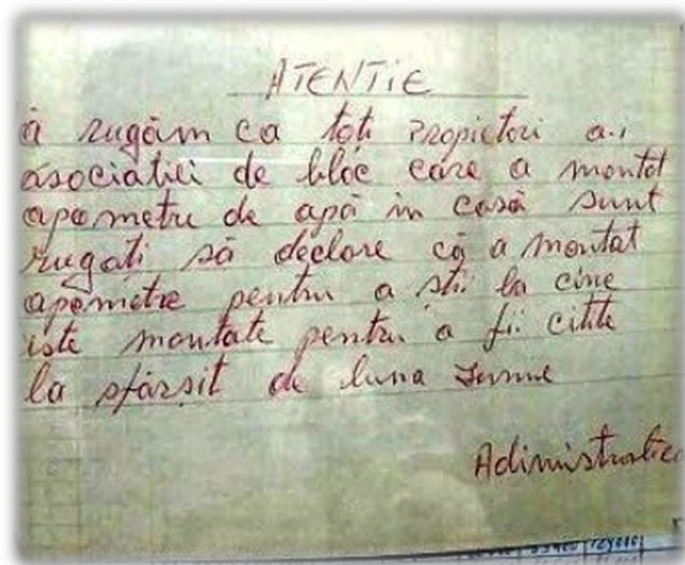 ATENTIE
ă rugăm ca toti Propietori a.i
asociatiei de bloc care a montat
apometre de apă in casă sunt
rugati să declare că a montat
apometre pentru a stii la cine
iste montate pentru a fii citite
la sfârsit de luna Iunie
Adiministratiea